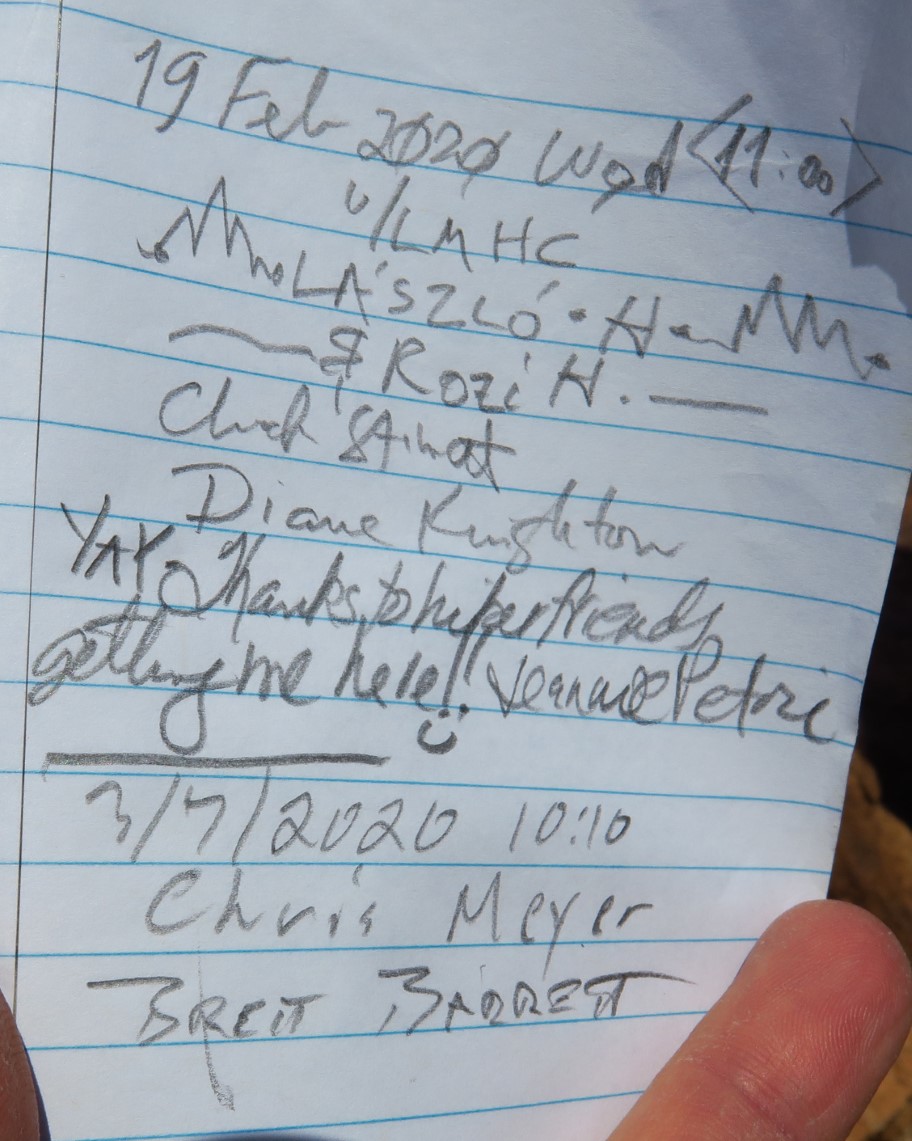 19 Feb 2020 Wed <11:00>
w/LMHC
LÁSZLÓ • H
& Rozi H.
Chuck
Diane Knighton
YAY Thanks to hiker friends
getting me here!! Jeannie Petrie
3/7/2020 10:10
Chris Meyer
BRETT BARRETT